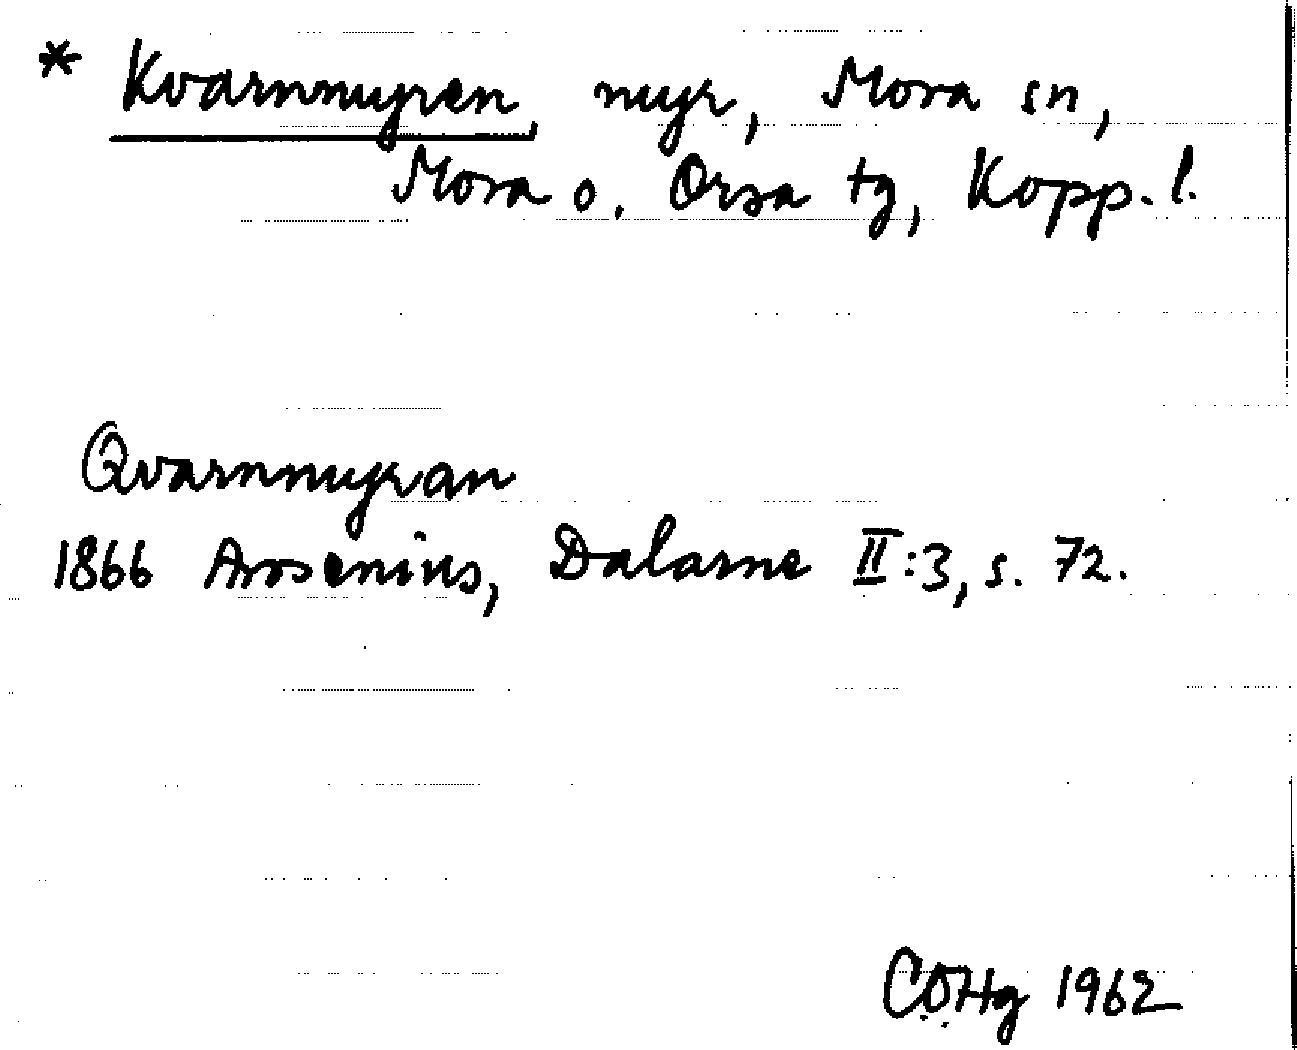 * Kvarnmyren, myr, Mora sn,
Mora o. Orsa tg, Kopp. l.
Qvarnmyran
1866 Arosenius, Dalarne II:3, s. 72.
COHg 1962